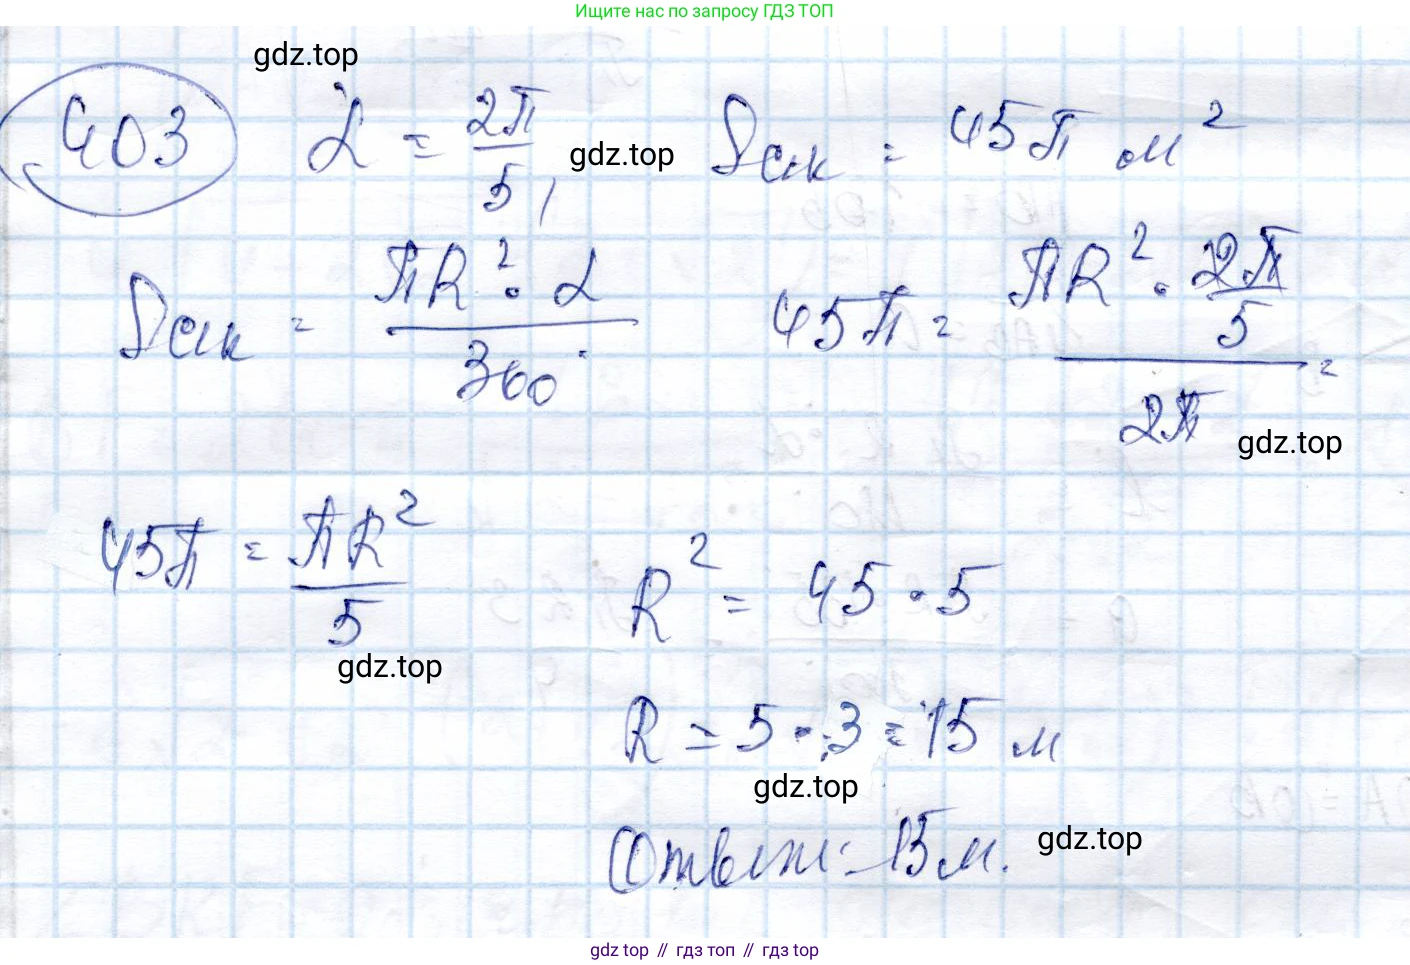 Ищите нас по запросу ГДЗ ТОП
gdz.top
403 α = 2π/5, gdz.top Sсек = 45π м²
Sсек = πR² · α / 360° 45π = πR² · 2π/5 / 2π =
gdz.top
45π = πR²/5 R² = 45 · 5
gdz.top
R = 5 · 3 = 15 м
gdz.top
Ответ: 15 м. gdz.top
gdz top // гдз топ // гдз top